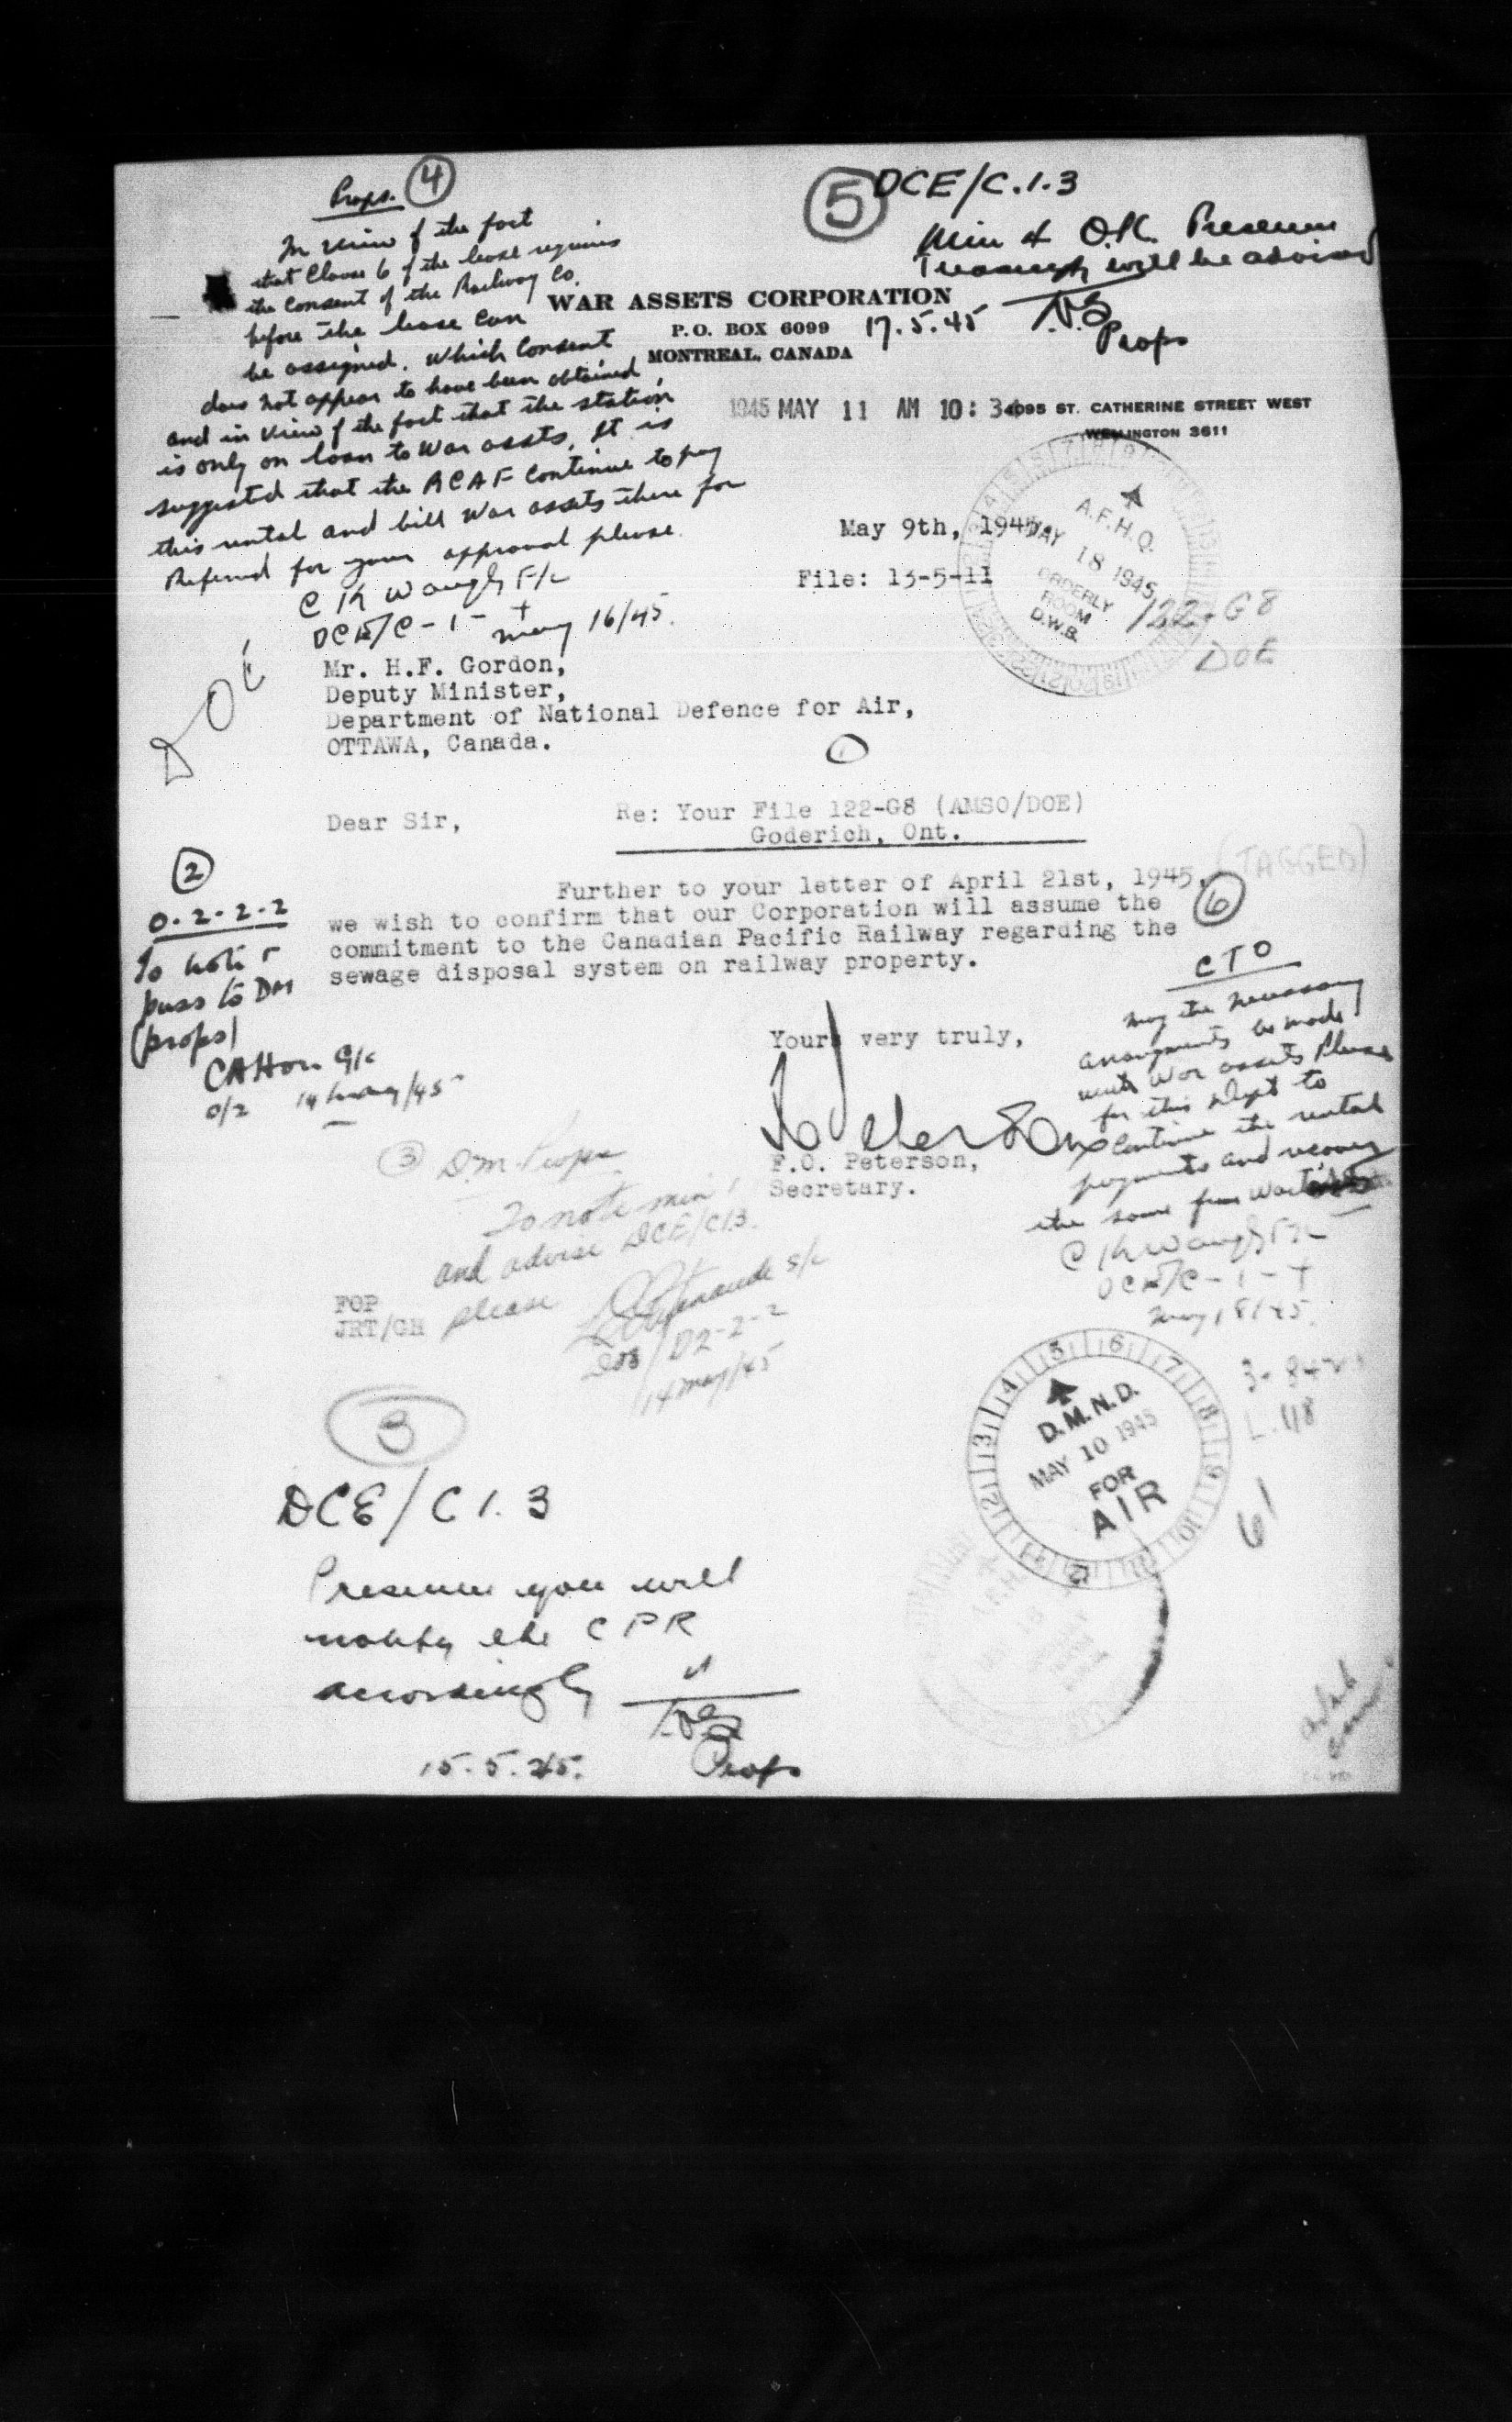 Props. 4
In view of the fact
that Clause 6 of the lease requires
the consent of the Railway Co.
before the lease can
be assigned. Which consent
does not appear to have been obtained,
and in view of the fact that the station
is only on loan to War assets, It is
suggested that the RCAF continue to pay
this rental and bill War assets there for
Referred for your approval please.
C K Waugh F/L
DCE/C-1-
May 16/45.
5 DCE/C.1.3
Min 4 O.K. Presume
Treasury will be advised
17.5.45
Props
WAR ASSETS CORPORATION
P.O. BOX 6099
MONTREAL, CANADA
1945 MAY 11 AM 10:3
4095 ST. CATHERINE STREET WEST
WELLINGTON 3611
May 9th, 1945
File: 13-5-11
A.F.H.Q.
MAY 18 1945
ORDERLY
ROOM
D.W.B.
122-G8
DOE
DOE
Mr. H.F. Gordon,
Deputy Minister,
Department of National Defence for Air,
OTTAWA, Canada.
1
Dear Sir,
Re: Your File 122-G8 (AMSO/DOE)
Goderich, Ont.
(TAGGED)
Further to your letter of April 21st, 1945,
we wish to confirm that our Corporation will assume the
commitment to the Canadian Pacific Railway regarding the
sewage disposal system on railway property.
2
0.2-2-2
To note &
pass to DM
(props)
14 May/45
Yours very truly,
F.O. Peterson,
Secretary.
6
CTO
May the necessary
arrangements be made
with War assets Please
for this Dept to
continue the rental
payments and recover
the same from War
C K Waugh F/L
DCE/C-1-
May 18/45.
3 D.M. Props
To note min
and advise DCE/C1.3.
please
D2-2-2
14 May/45
FOP
JRT/GH
D.M.N.D.
MAY 10 1945
FOR
AIR
L.118
61
3
DCE/C 1.3
Presume you will
notify the CPR
accordingly
15.5.45.
Props